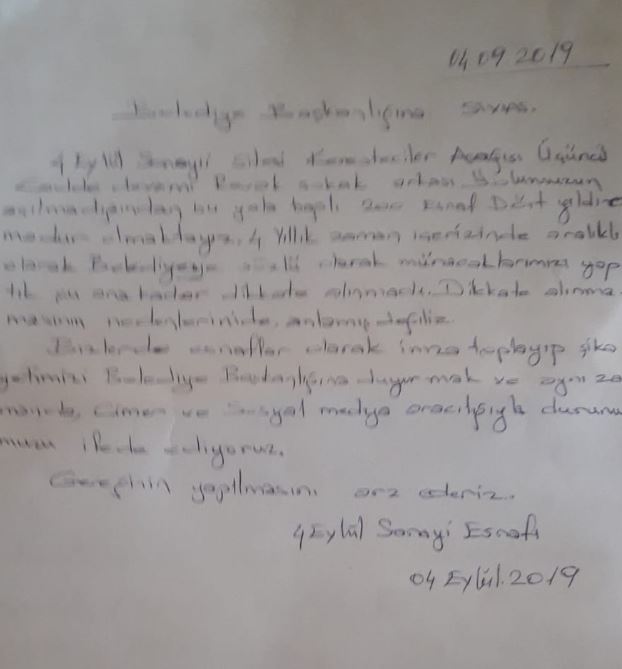 04.09.2019
Belediye Başkanlığına SİVAS.
4 Eylül Sanayii Sitesi Keresteciler Aşağısı Üçüncü
Cadde devamı sokak arkası Yolumuzun
açılmadığından bu yola bağlı 200 Esnaf Dört yıldır
mağdur olmaktayız. 4 Yıllık zaman içerizinde aralıklı
olarak Belediyeye sözlü olarak müracaatlarımızı yap
tık şu ana kadar dikkate alınmadı. Dikkate alınma
masının nedenlerinide, anlamış değiliz
Bizlerde esnaflar olarak imza toplayıp şika
yetimizi Belediye Başkanlığına duyurmak ve aynı za
manda, ve Sosyal medya aracılığıyla durumu
muzu ifade ediyoruz.
Gereğinin yapılmasını arz ederiz.
4 Eylül Sanayi Esnafı
04 Eylül.2019